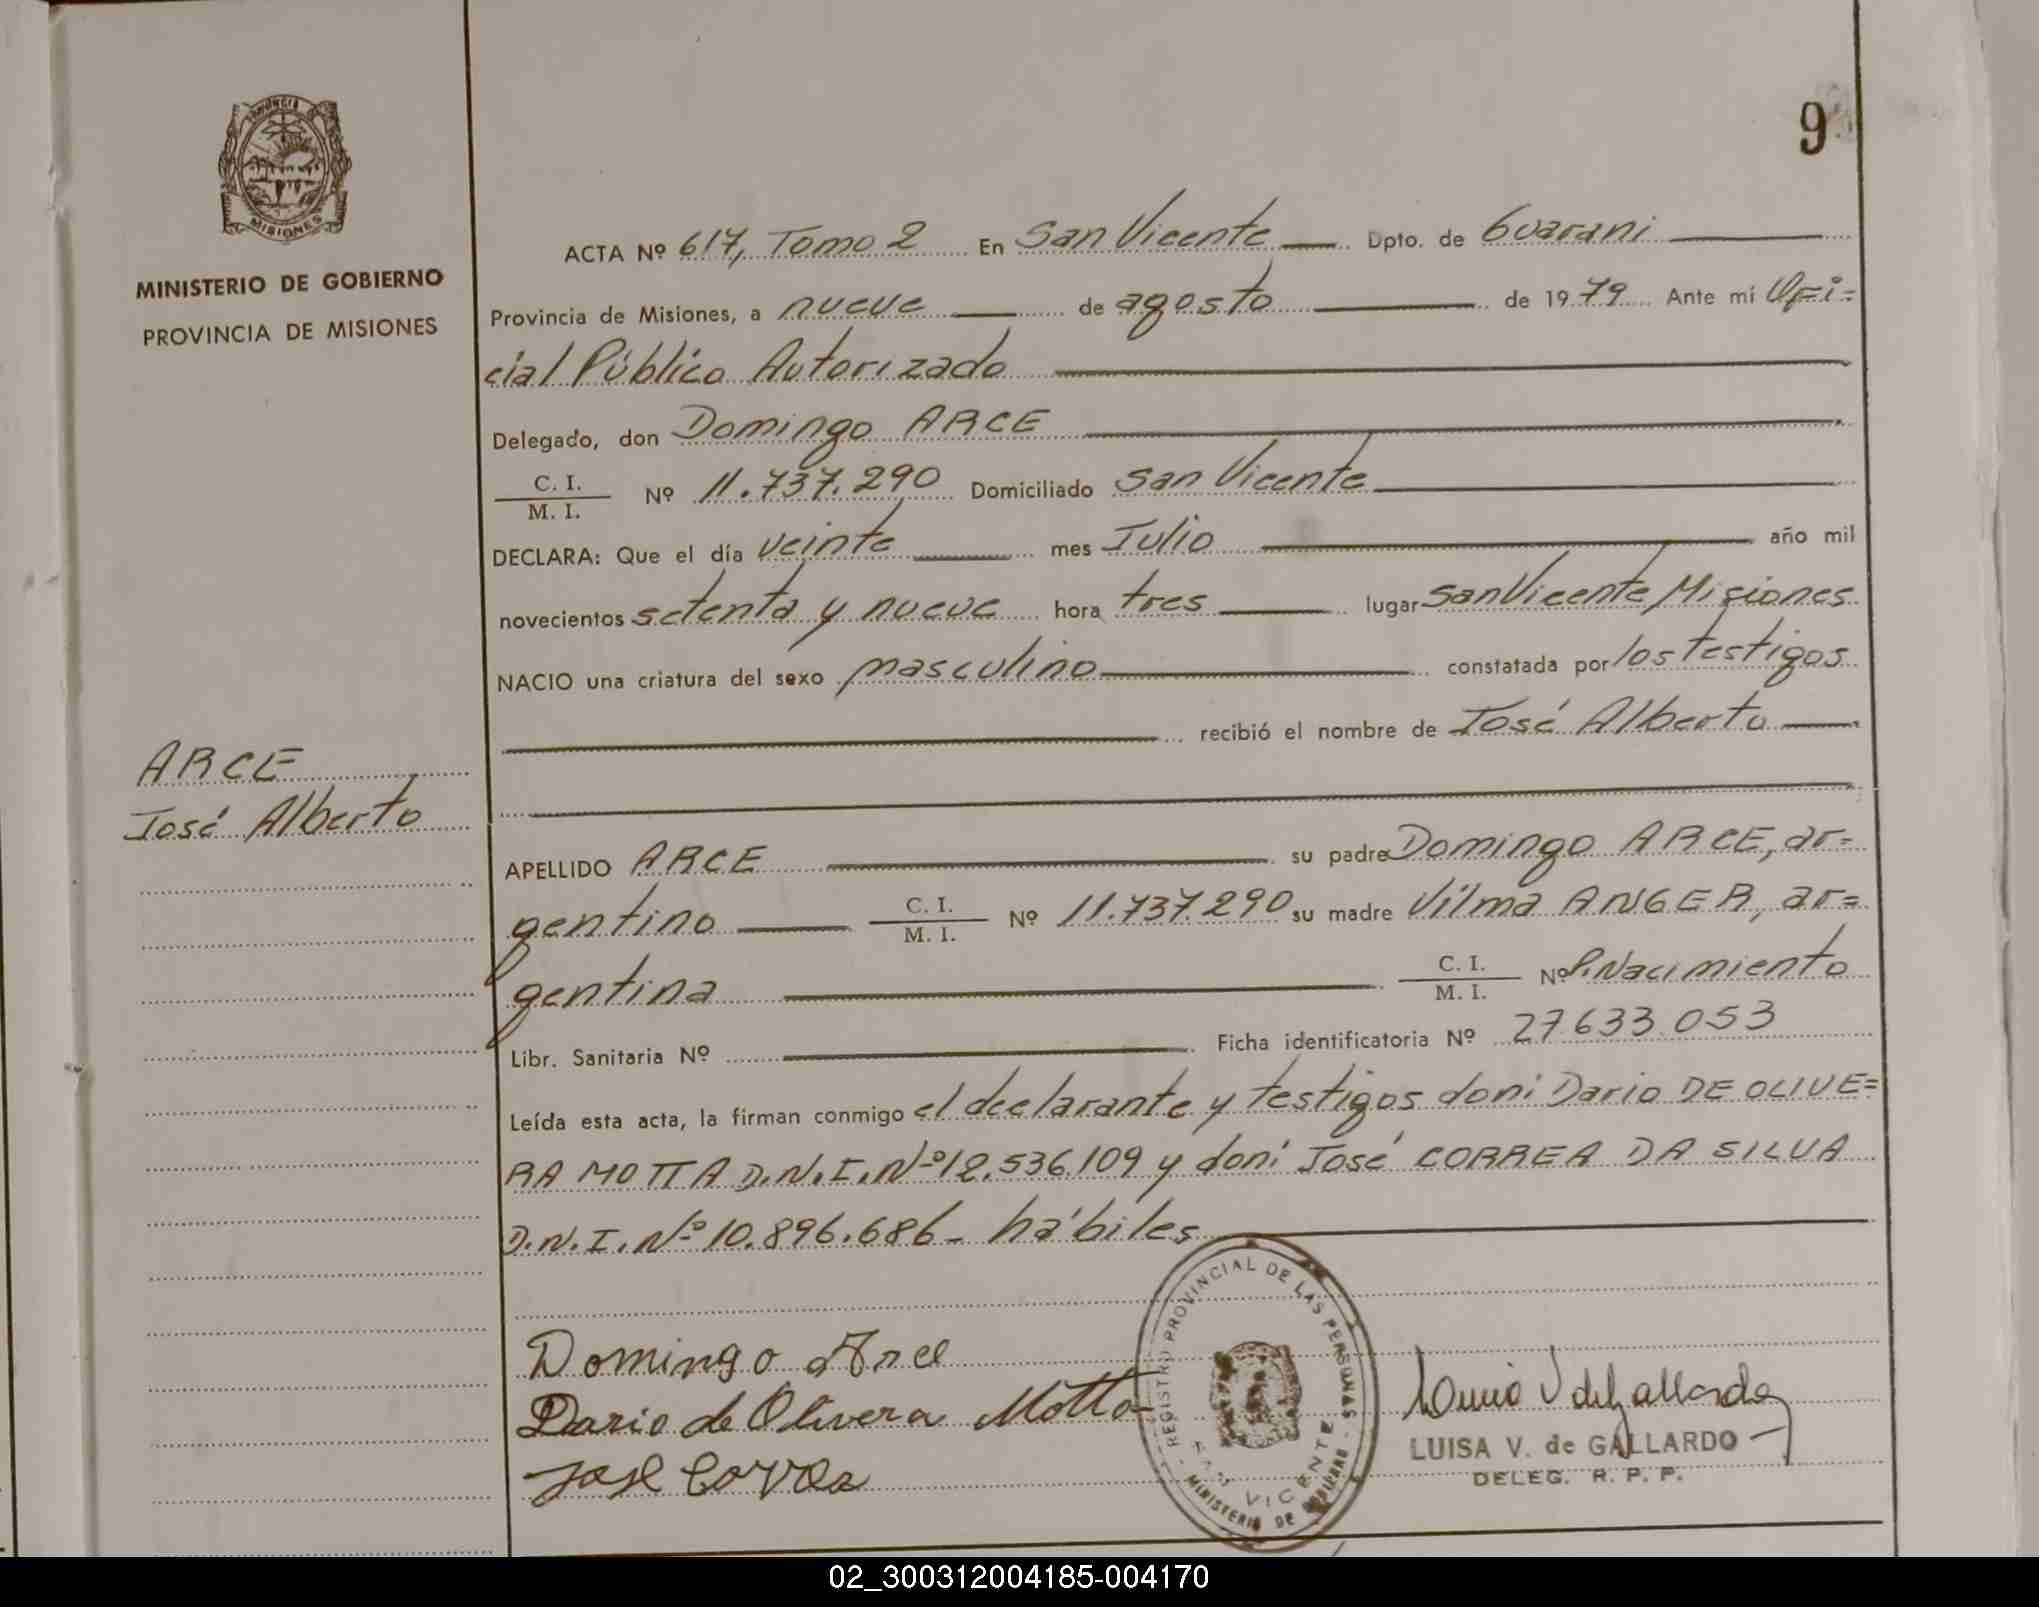 PROVINCIA
MISIONES
MINISTERIO DE GOBIERNO
PROVINCIA DE MISIONES
9
ACTA Nº 617, Tomo 2 En San Vicente Dpto. de Guarani
Provincia de Misiones, a nueve de agosto de 1979 Ante mí Ofi=
cial Público Autorizado
Delegado, don Domingo ARCE
C. I.
M. I. Nº 11.737.290 Domiciliado San Vicente
DECLARA: Que el día veinte mes Julio año mil
novecientos setenta y nueve hora tres lugar San Vicente Misiones
NACIO una criatura del sexo masculino constatada por los testigos
recibió el nombre de José Alberto
ARCE
José Alberto
APELLIDO ARCE su padre Domingo ARCE, ar=
gentino C. I.
M. I. Nº 11.737.290 su madre Vilma ANGER, ar=
gentina C. I.
M. I. Nº P. Nacimiento
Libr. Sanitaria Nº Ficha identificatoria Nº 27.633.053
Leída esta acta, la firman conmigo el declarante y testigos don: Dario DE OLIVE=
RA MOTTA D.N.I. Nº 12.536.109 y don: José CORREA DA SILVA
D.N.I. Nº 10.896.686- hábiles
Domingo Arce
Dario de Olivera Motta
José Correa
REGISTRO PROVINCIAL DE LAS PERSONAS
SAN VICENTE
MINISTERIO DE GOBIERNO
Luisa V de Gallardo
LUISA V. de GALLARDO
DELEG. R. P. P.
02_300312004185-004170